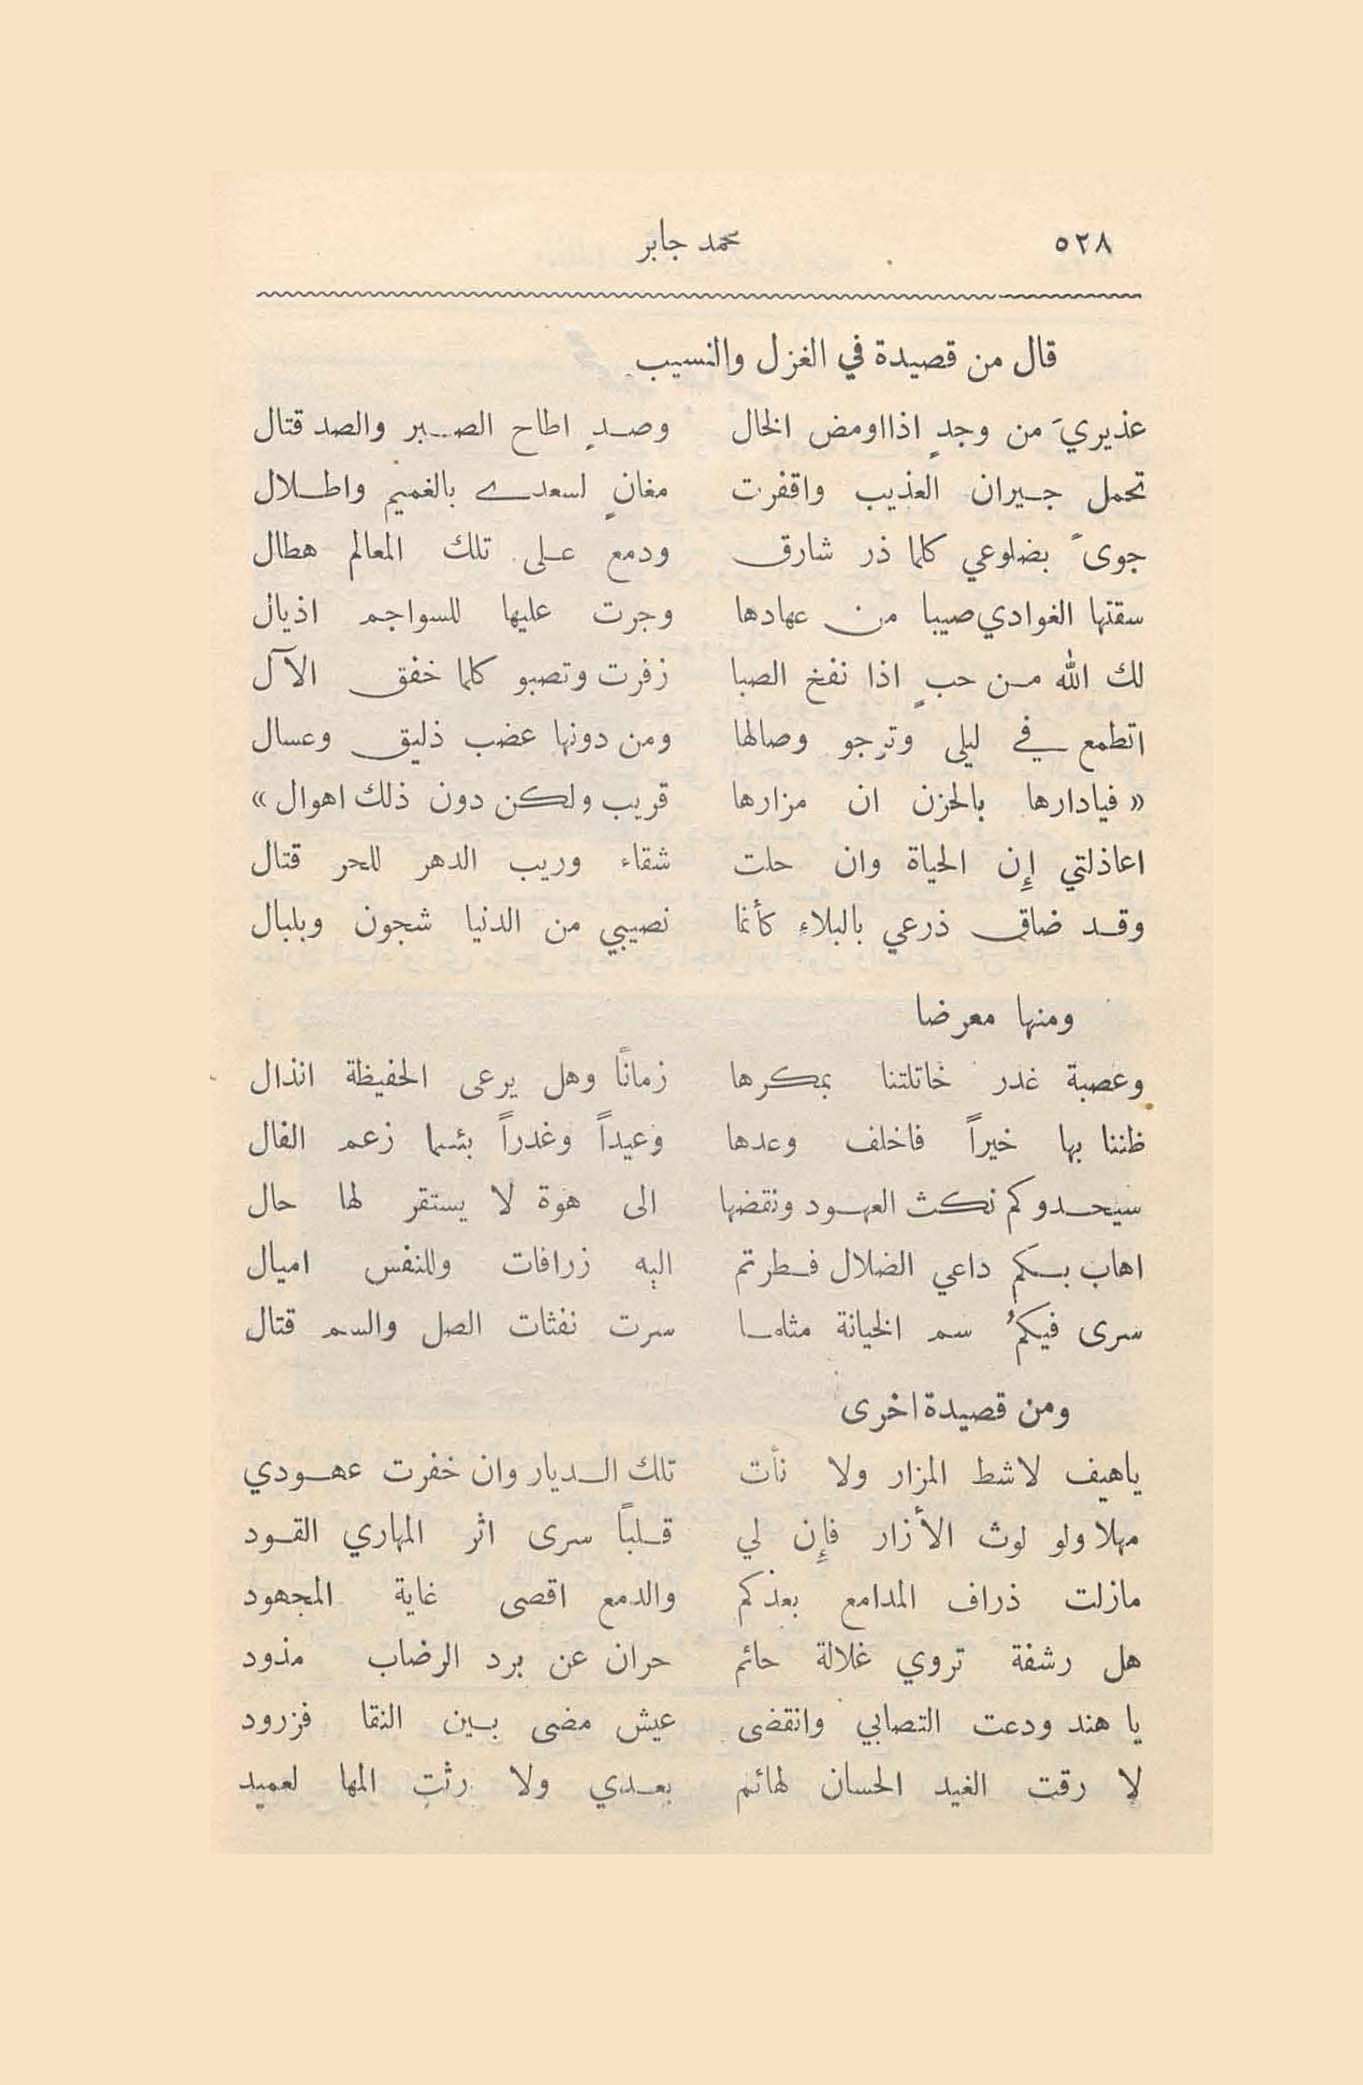 ٥٢٨ محمد جابر
قال من قصيدة في الغزل والنسيب
عذيريَ من وجدٍ اذا اومض الخال وصدٍ اطاح الصبر والصد قتال
تحمل جيران العذيب واقفرت مغانٍ لسعدى بالغميم واطلال
جوىً بضلوعي كلما ذر شارق ودمع على تلك المعالم هطال
سقتها الغوادي صيبا من عهادها وجرت عليها للسواجم اذيال
لك الله من حبٍ اذا نفخ الصبا زفرت وتصبو كلما خفق الآل
اتطمع في ليلى وترجو وصالها ومن دونها عضب ذليق وعسال
« فيادارها بالحزن ان مزارها قريب ولكن دون ذلك اهوال »
اعاذلتي إِن الحياة وان حلت شقاء وريب الدهر للحر قتال
وقد ضاق ذرعي بالبلاءِ كأنما نصيبي من الدنيا شجون وبلبال
ومنها معرضا
وعصبة غدر خاتلتنا بمكرها زمانًا وهل يرعى الحفيظة انذال
ظننا بها خيراً فاخلف وعدها وعيداً وغدراً بئسما زعم الفال
سيحدوكم نكث العهود ونقضها الى هوة لا يستقر لها حال
اهاب بكم داعي الضلال فطرتم اليه زرافات وللنفس اميال
سرى فيكمُ سم الخيانة مثلما سرت نفثات الصل والسم قتال
ومن قصيدة اخرى
ياهيف لاشط المزار ولا نأت تلك الديار وان خفرت عهودي
مهلا ولو لوث الأزار فإِن لي قلباً سرى اثر المهاري القود
مازلت ذراف المدامع بعدكم والدمع اقصى غاية المجهود
هل رشفة تروي غلالة حائم حران عن برد الرضاب مذود
يا هند ودعت التصابي وانقضى عيش مضى بين النقا فزرود
لا رقت الغيد الحسان لهائم بعدي ولا رثت المها لعميد